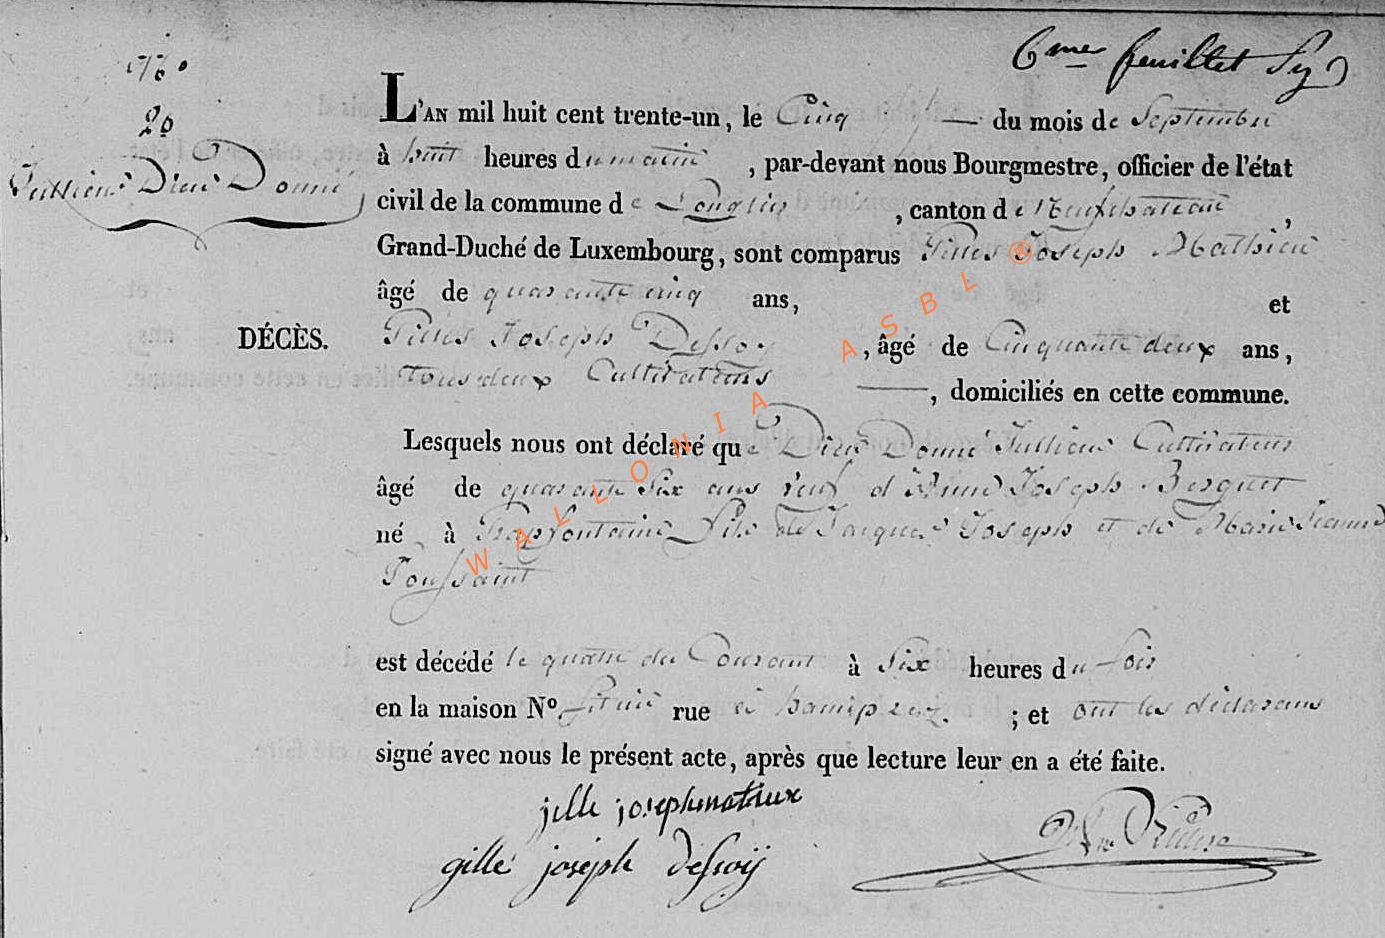 6me feuillet
No
20
Jullien Dieu Donné
L'AN mil huit cent trente-un, le Cinq — du mois de Septembre
à huit heures du matin, par-devant nous Bourgmestre, officier de l'état
civil de la commune de Longlier, canton de Neufchateau,
Grand-Duché de Luxembourg, sont comparus Gilles Joseph Mathieu
âgé de quarante cinq ans, et
DÉCÈS.
Gilles Joseph Dessoy, âgé de Cinquante deux ans,
tous deux Cultivateurs —, domiciliés en cette commune.
Lesquels nous ont déclaré que Dieu Donné Jullien Cultivateur
âgé de quarante Six ans veuf d'Anne Joseph Berguet
né à Grapfontaine fils de Jacques Joseph et de Marie Jeanne
Toussaint
est décédé le quatre du Courant à Six heures du soir
en la maison No. située rue à hamipré; et ont les déclarans
signé avec nous le présent acte, après que lecture leur en a été faite.
jille joseph matiux
gille joseph dessoÿ
WALLONIA ASBL ®